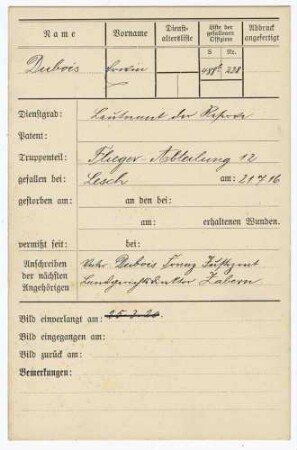 Name Vorname Dienst-altersliste Liste der gefallenen Offiziere Abdruck angefertigt
S Nr.
Dubois Erwin 238
Dienstgrad: Leutnant der Reserve
Patent:
Truppenteil: Flieger-Abteilung 12
gefallen bei: Lesch am: 21 7 16
gestorben am: an den bei:
am: erhaltenen Wunden.
vermißt seit: bei:
Anschreiben der nächsten Angehörigen
Vater Dubois Franz
Landgerichtsdirektor Zabern
Bild einverlangt am: 25-7-20.
Bild eingegangen am:
Bild zurück am:
Bemerkungen: